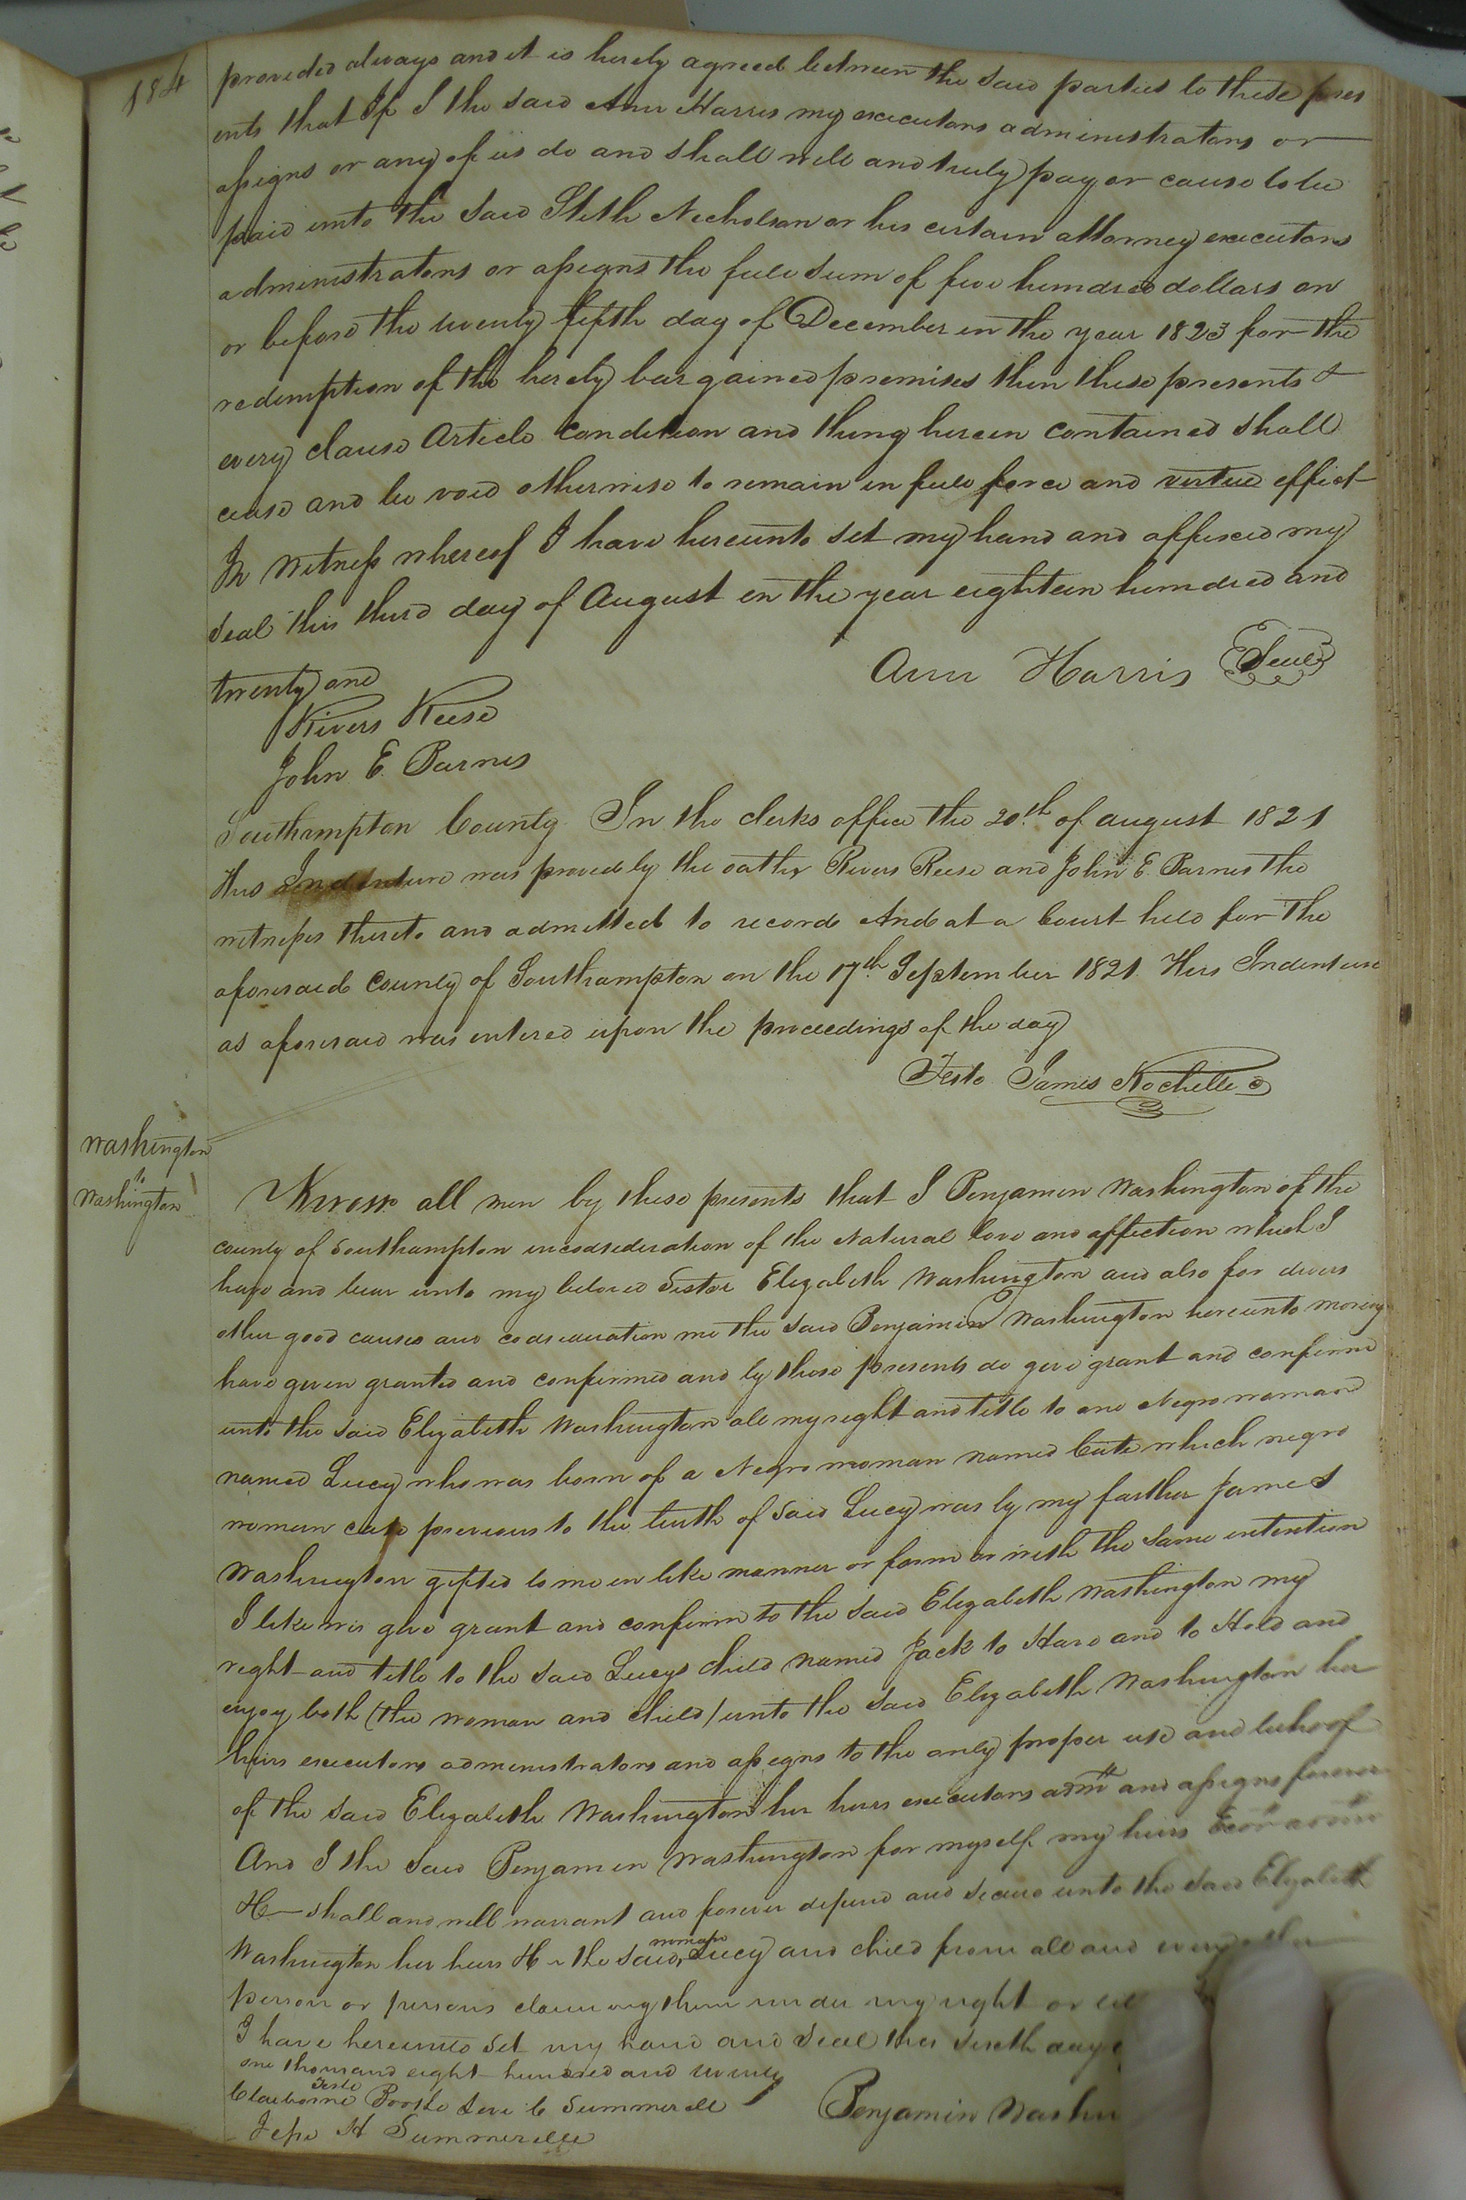 184
provided always and it is hereby agreed between the said parties to these pres
ents that If I the said Ann Harris my executors administrators or
assigns or any of us do and shall well and truly pay or cause to be
paid unto the said Stith Nicholson or his certain attorney executors
administrators or assigns the full sum of five hundred dollars on
or before the twenty fifth day of December in the year 1823 for the
redemption of the hereby bargained premises then these presents &
every clause Article Condition and thing herein contained shall
cease and be void otherwise to remain in full force and virtue effect
In Witness whereof I have hereunto set my hand and affixed my
seal this third day of August in the year eighteen hundred and
twenty one
Ann Harris Seal
Rivers Reese
John E. Barnes
Southampton County In the clerks office the 20th of august 1821
This Indenture was proved by the oaths Rivers Reese and John E Barnes the
witnesses thereto and admitted to record And at a Court held for the
aforesaid County of Southampton on the 17th September 1821. This Indenture
as aforesaid was entered upon the proceedings of the day
Teste James Rochelle
Washington
to
Washington
Know all men by these presents that I Benjamin Washington of the
county of Southampton in consideration of the Natural love and affection which I
have and bear unto my beloved Sister Elizabeth Washington and also for divers
other good causes and consideration me the said Benjamin Washington hereunto moving
have given granted and confirmed and by these presents do give grant and confirm
unto the said Elizabeth Washington all my right and title to one Negro woman
named Lucy who was born of a Negro woman named Cate which negro
woman cate previous to the birth of said Lucy was by my farther James
Washington gifted to me in like manner or form or with the same intention
I like wis give grant and confirm to the said Elizabeth Washington my
right and title to the said Lucys child named Jack to Have and to Hold and
enjoy both (the woman and child) unto the said Elizabeth Washington her
heirs executors administrators and assigns to the only proper use and behoof
of the said Elizabeth Washington her heirs executors admr and assigns forever
And I the said Benjamin Washington for myself my heirs
shall and will warrant and forever defend and secure unto the said Elizabeth
Washington her heirs the said woman Lucy and child from all and every other
person or persons claiming them under my right or
I have hereunto set my hand and seal this sixth day
one thousand eight hundred and twenty
Teste
Claiborne Levi C Summerell
Benjamin Washin
Jesse H Summerell